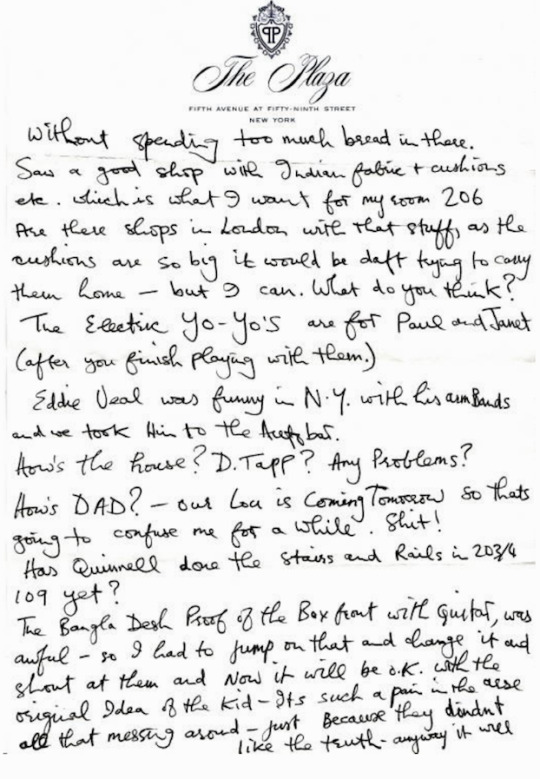 PP
The Plaza
FIFTH AVENUE AT FIFTY-NINTH STREET
NEW YORK
Without spending too much bread in there.
Saw a good shop with Indian fabric + cushions
etc. which is what I want for my room 206
Are there shops in London with that stuff, as the
cushions are so big it would be daft trying to carry
them home – but I can. What do you think?
The Electric Yo-Yo's are for Paul and Janet
(after you finish playing with them.)
Eddie Veal was funny in N.Y. with his arm Bands
and we took Him to the bar.
How's the house? D. Tapp? Any Problems?
How's DAD? – our Lou is Coming Tomorrow so thats
going to confuse me for a while. Shit!
Has Quinnell done the Stairs and Rails in 203/4
109 yet?
The Bangla Desh Proof of the Box front with Guitar, was
awful – so I had to jump on that and change it and
shout at them and Now it will be O.K. with the
original Idea of the kid – Its such a pain in the arse
all that messing around – just Because they dindnt
like the truth – anyway it will